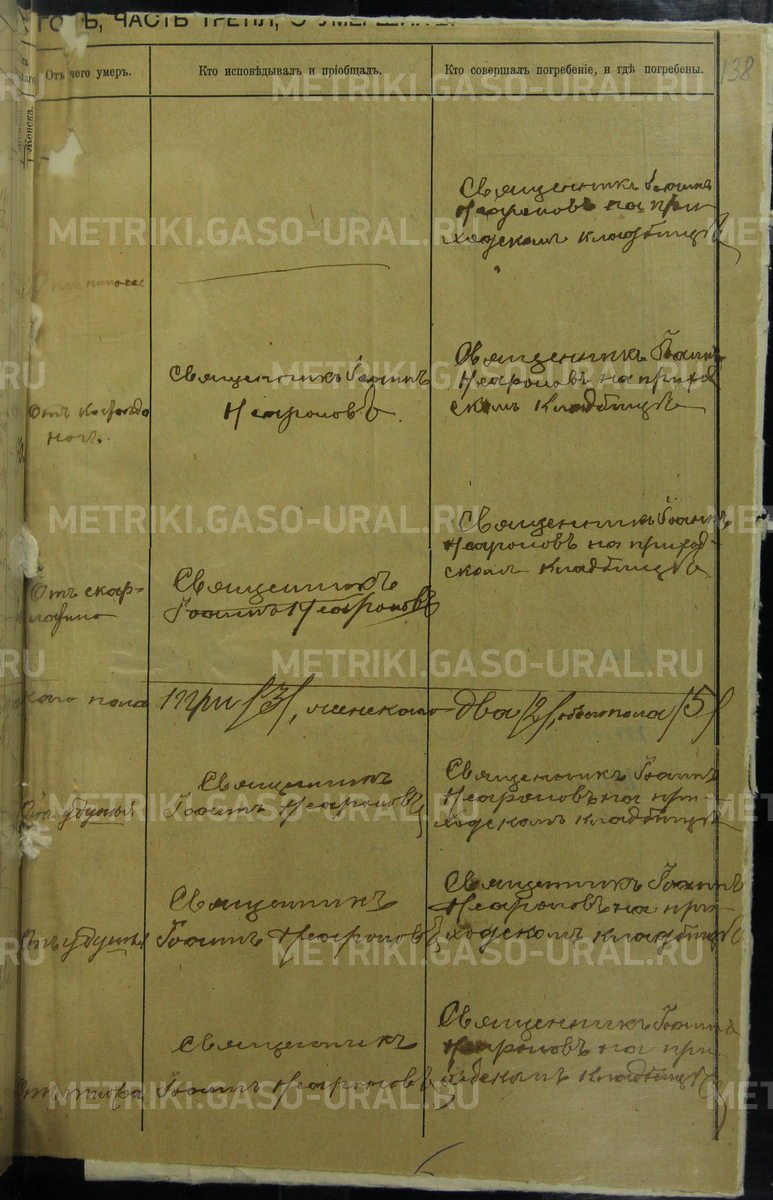 ГОДЪ, ЧАСТЬ ТРЕТЬЯ, О УМЕРШИХЪ.
138
Отъ чего умеръ.
Кто исповѣдывалъ и пріобщалъ.
Кто совершалъ погребеніе, и гдѣ погребены.
Женска.
METRIKI.GASO-URAL.RU
Священникъ Іоаннъ
Неароновъ на при-
ходскомъ кладбищѣ
Священникъ Іоаннъ
Неароновъ
Священникъ Іоаннъ
Неароновъ на приход
скомъ кладбищѣ
Отъ скар-
латины
Священникъ
Іоаннъ Неароновъ
Священникъ Іоаннъ
Неароновъ на приход-
скомъ кладбищѣ
пола три /3/, женскаго два /2/, обоего пола /5/
Священникъ
Іоаннъ Неароновъ
Священникъ Іоаннъ
Неароновъ на при-
ходскомъ кладбищѣ
Отъ удушья
Священникъ
Іоаннъ Неароновъ
Священникъ Іоаннъ
Неароновъ на при-
ходскомъ кладбищѣ
Отъ тифа
Священникъ
Іоаннъ Неароновъ
Священникъ Іоаннъ
Неароновъ на при
ходскомъ кладбищѣ